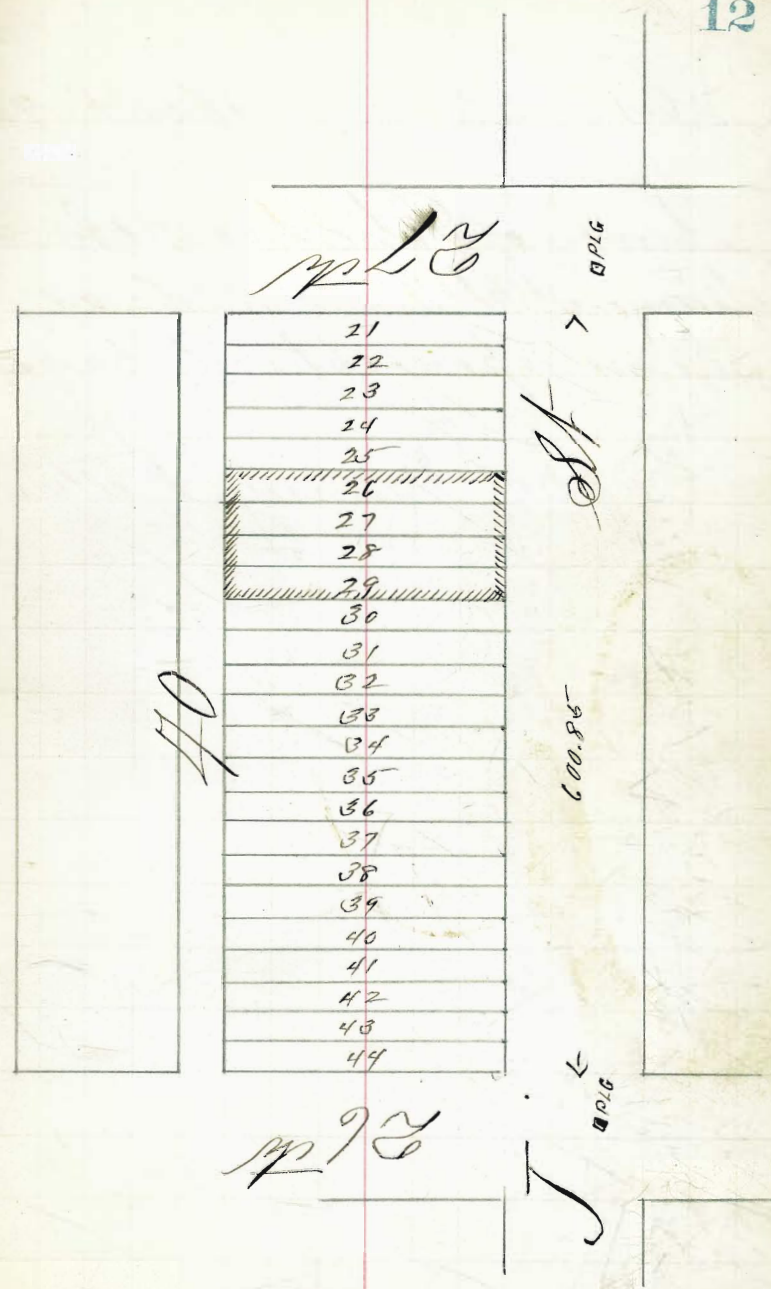 12
27th
PLG
21
22
23
24
25
26
27
28
29
30
31
32
33
34
35
36
37
38
39
40
41
42
43
44
40
J St
600.85
PLG
26th